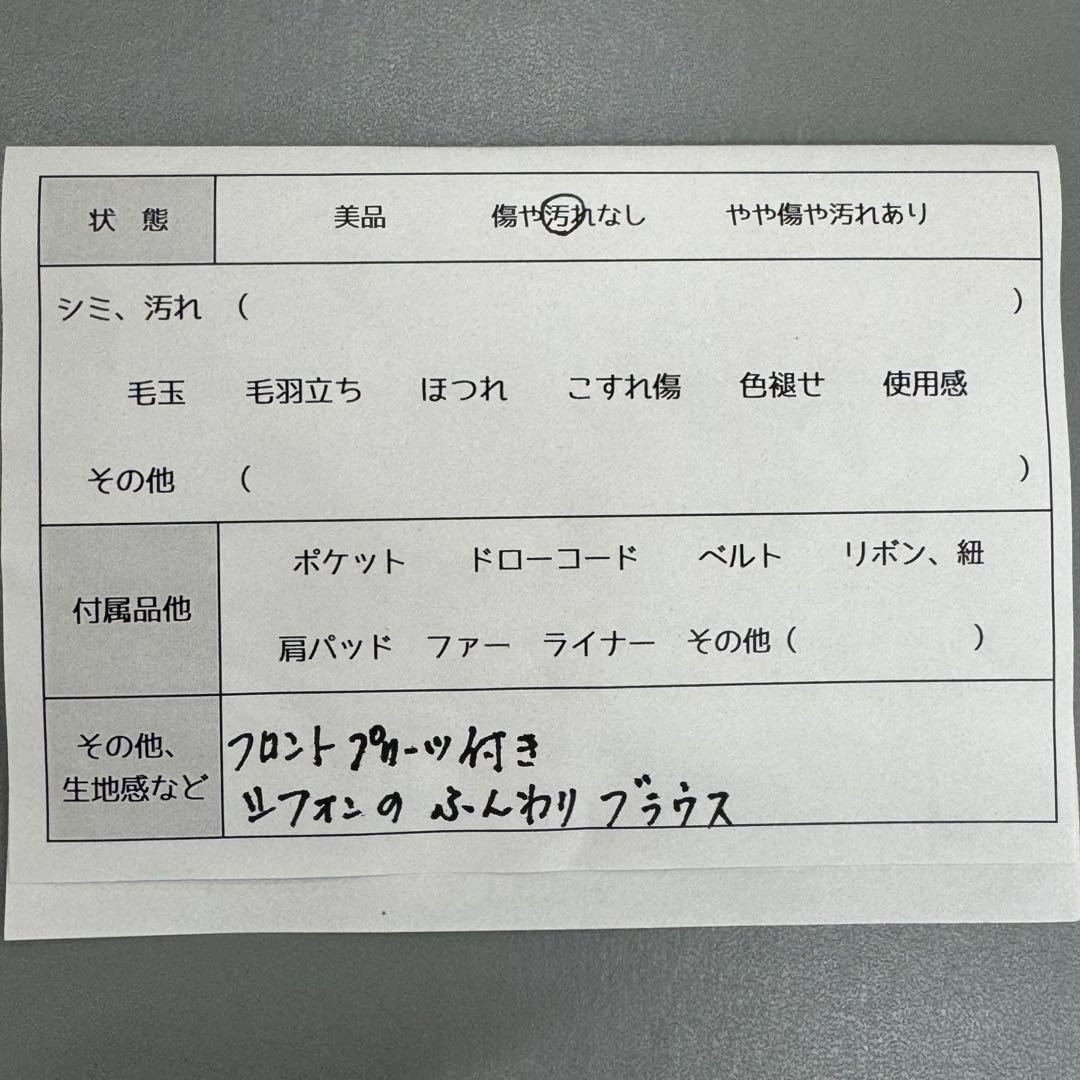 状 態 美品 傷や汚れなし やや傷や汚れあり
シミ、汚れ ( )
毛玉 毛羽立ち ほつれ こすれ傷 色褪せ 使用感
その他 ( )
付属品他
ポケット ドローコード ベルト リボン、紐
肩パッド ファー ライナー その他 ( )
その他、
生地感など
フロントプリーツ付き
シフォンの ふんわり ブラウス